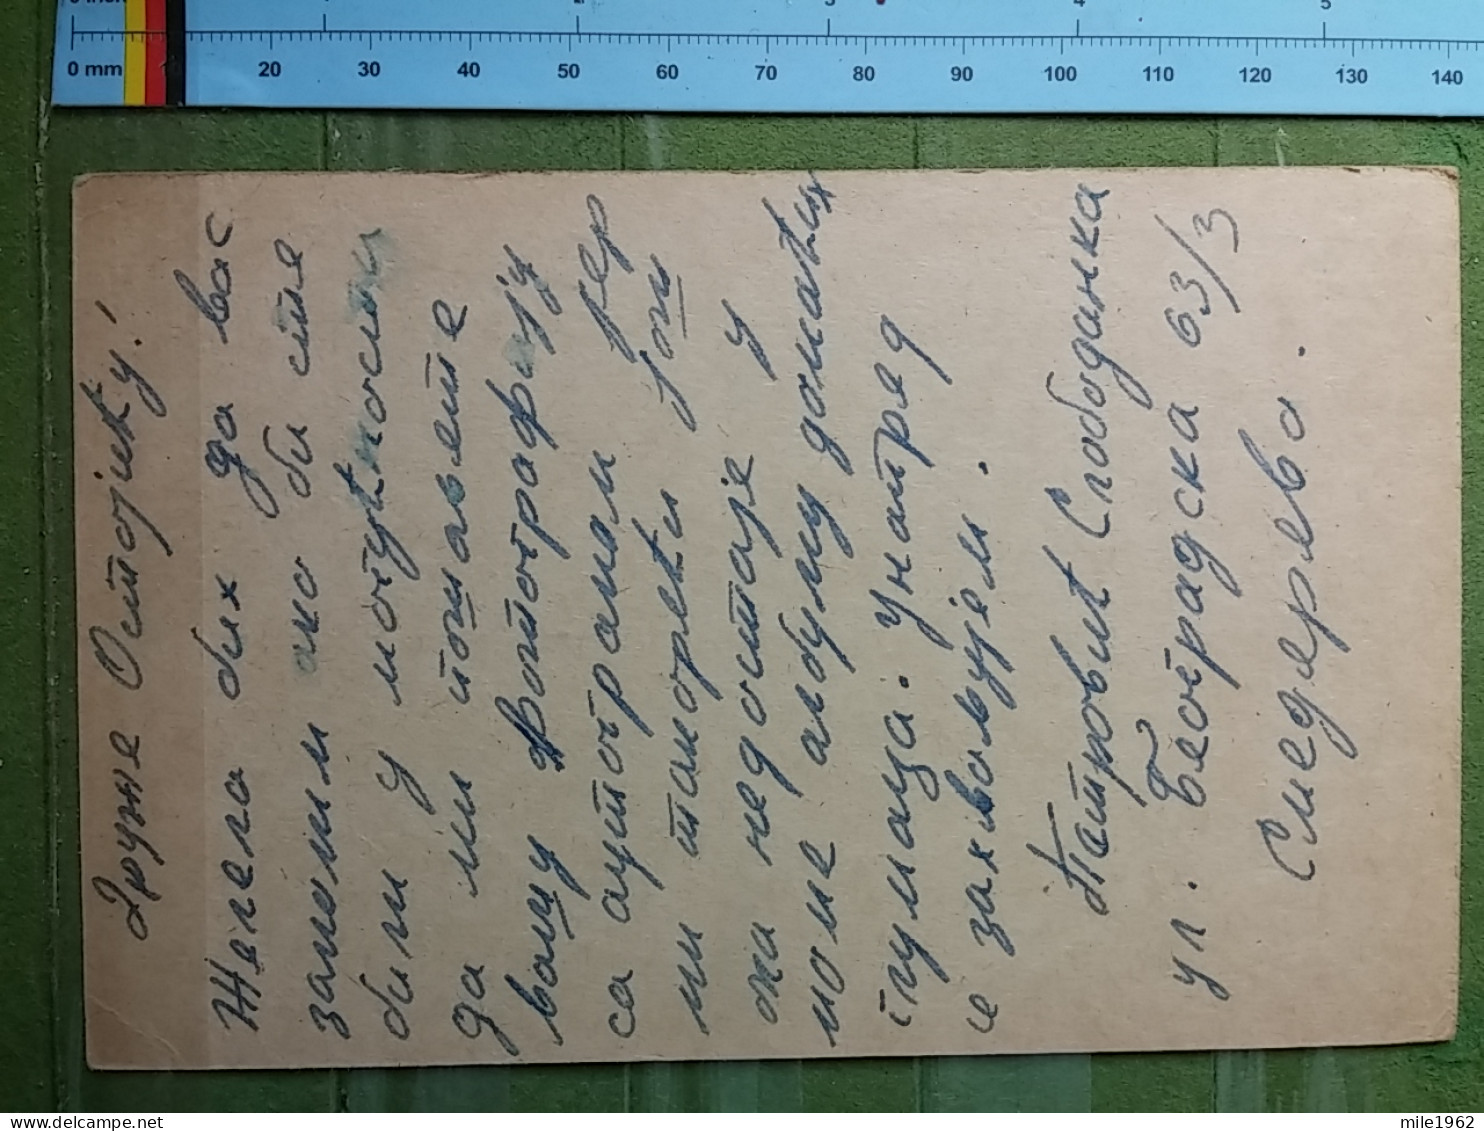 0 inch 1 2 3 4 5
0 mm 20 30 40 50 60 70 80 90 100 110 120 130 140
Друже Остојићу!
Желела бих да вас
замолим ако би сте
били у могућности
да ми пошаљете
вашу фотографију
са аутограмом јер
ми такорећи још
она недостаје у
моме албуму домаћих
глумаца. Унапред
се захваљујем.
Петровић Слободанка
ул. Београдска 63/3
Смедерево.
mile1962